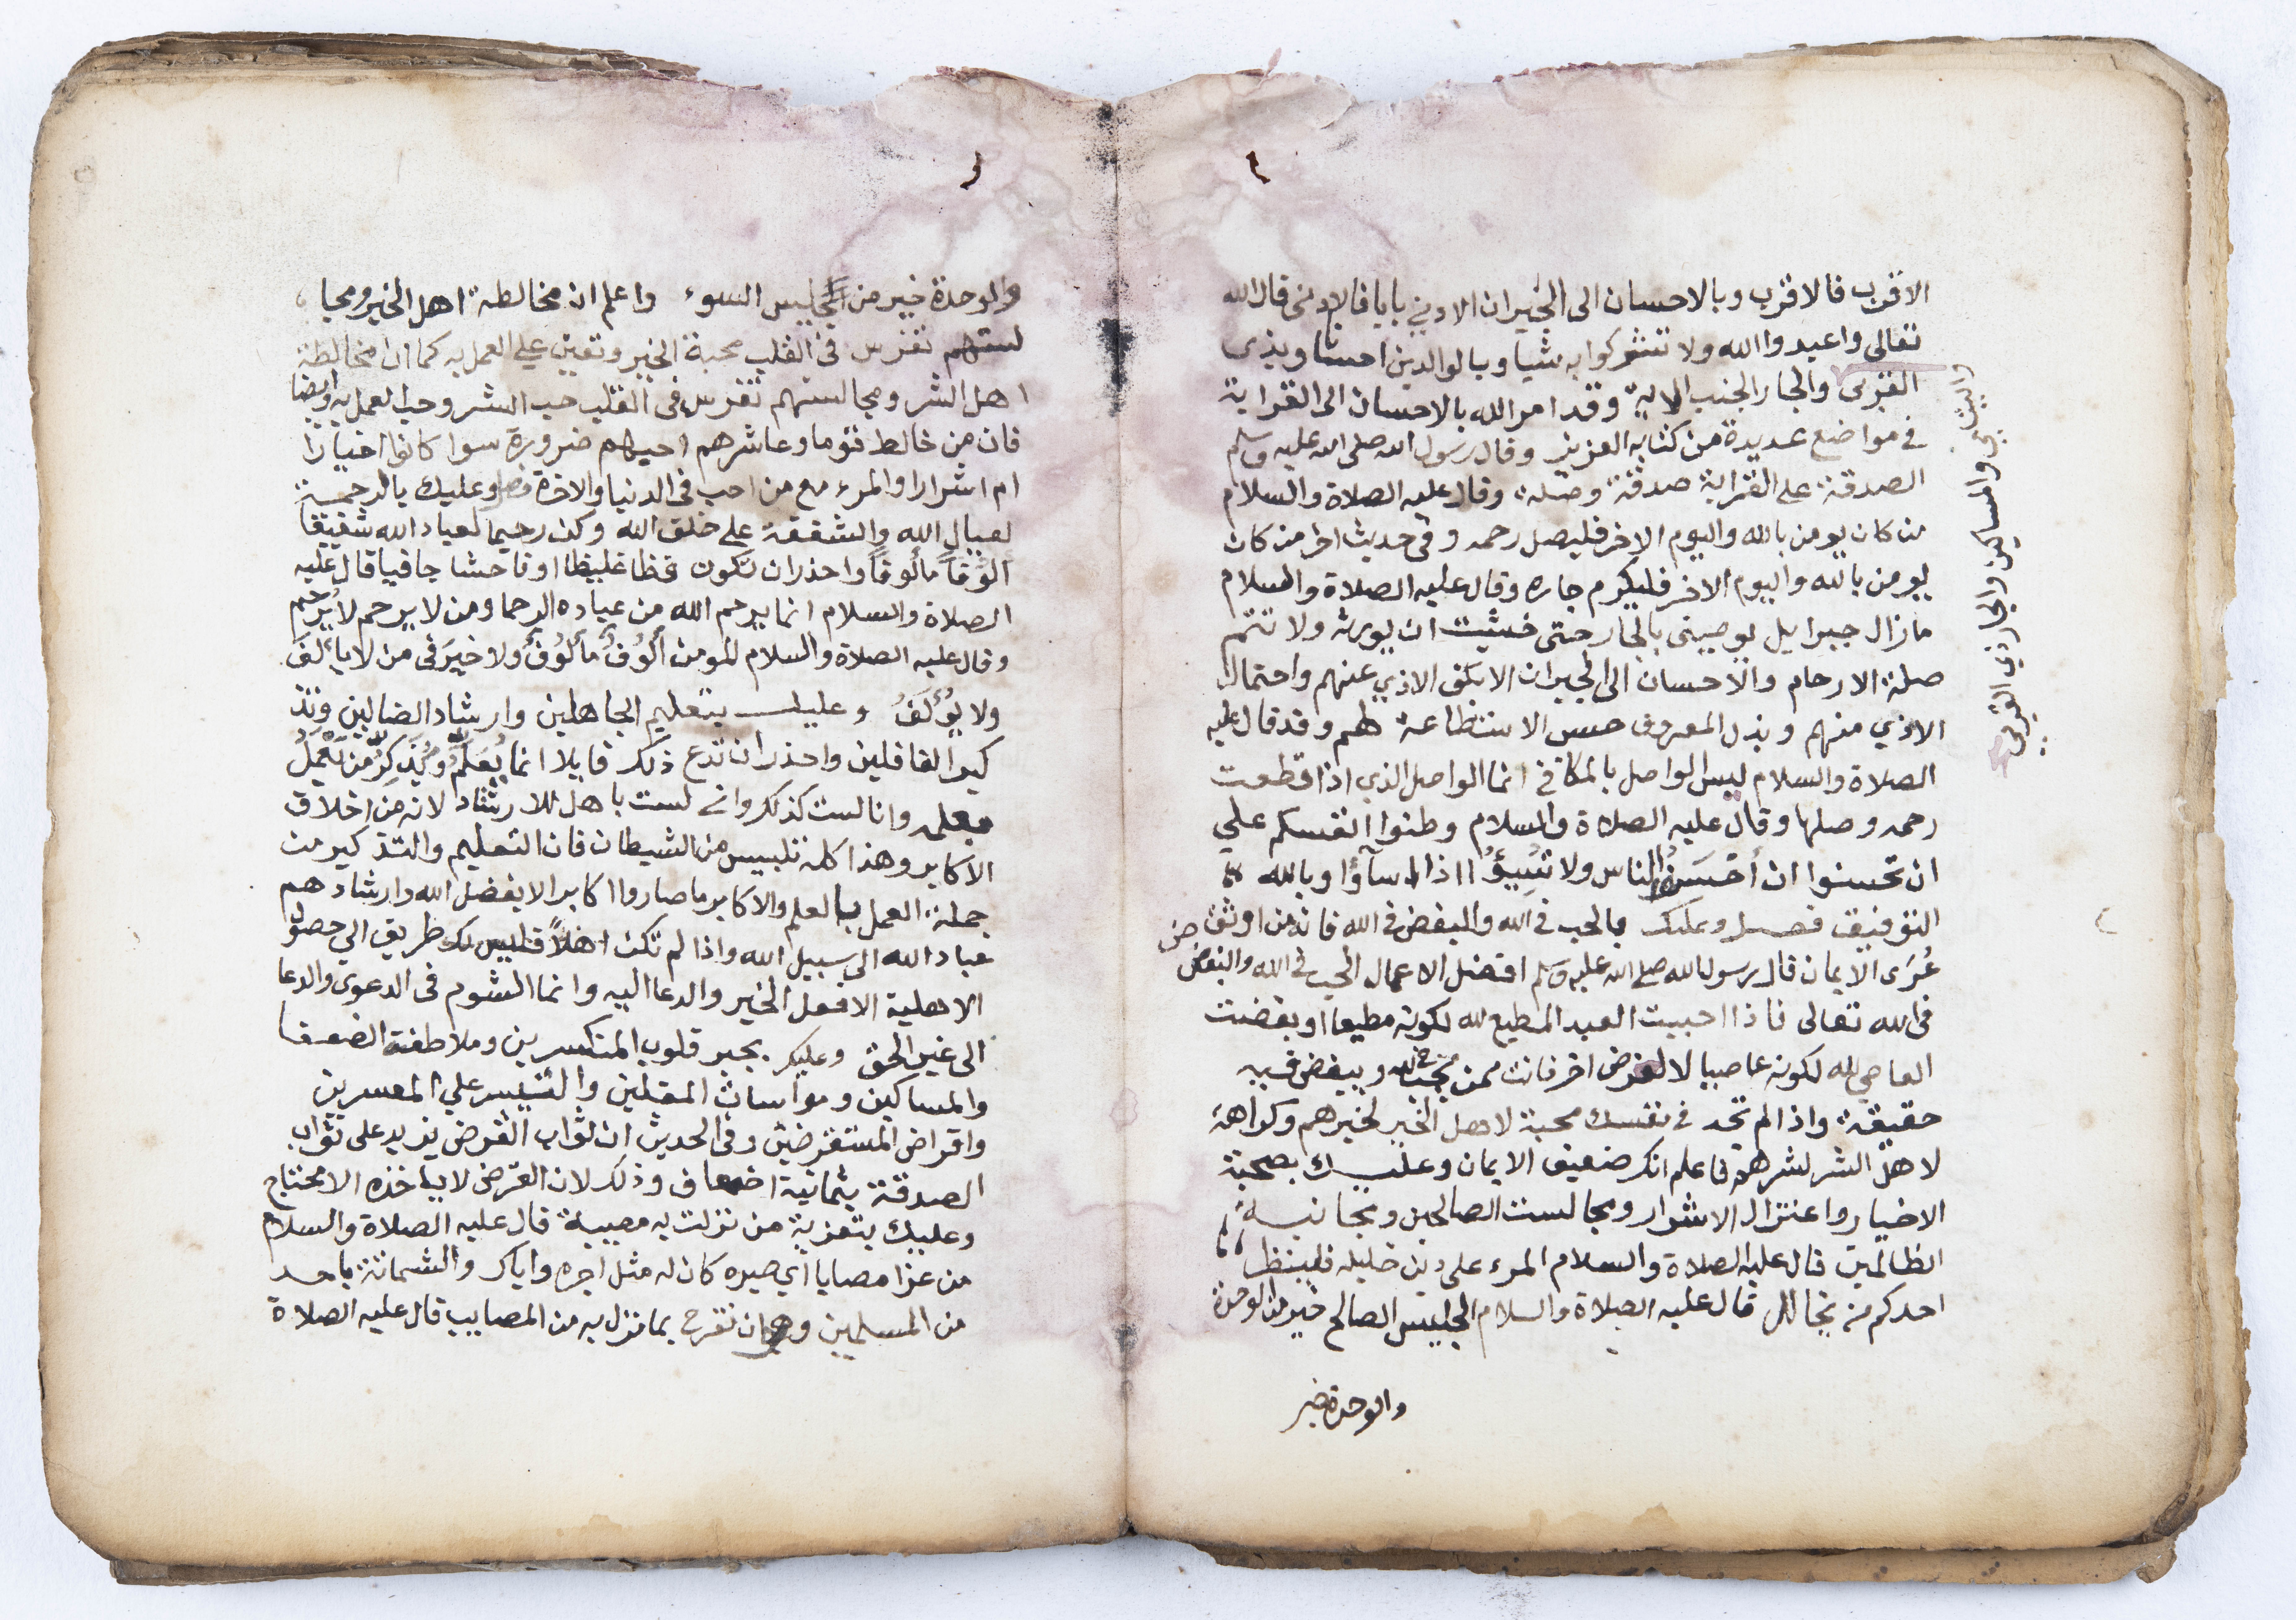 الاقرب فالاقرب وبالاحسان الى الجيران الادني بابا فالادنى قال الله
تعالى واعبدوا الله ولا تشركوا به شيا وبالوالدين احسانا وبذى
القربى والجار الجنب الاية وقد امر الله بالاحسان الى القرابة
في مواضع عديدة من كتابه العزيز وقال رسول الله صلى الله عليه وسلم
الصدقة على القرابة صدقة وصلة وقال عليه الصلاة والسلام
من كان يومن بالله واليوم الاخر فليصل رحمه وفى حديث اخر من كان
يومن بالله واليوم الاخر فليكرم جاره وقال عليه الصلاة والسلام
مازال جبرايل يوصينى بالجار حتى خشيت ان يورثه ولا تتم
صلة الارحام والاحسان الى الجيران الا بكف الاذي عنهم واحتمال
الاذي منهم وبذل المعروف حسب الاستطاعة لهم وقد قال عليه
الصلاة والسلام ليس الواصل بالمكافي انما الواصل الذي اذا قطعت
رحمه وصلها وقال عليه الصلاة والسلام وطنوا انفسكم علي
ان تحسنوا ان أحْسَنَ الناس ولا تُسِيؤُا اذا اساؤا وبالله
التوفيق فصل وعليك بالحب فى الله والبغض فى الله فانه من اوثق
عُرَى الايمان قال رسول الله صلى الله عليه وسلم افضل الاعمال الحب فى الله والبغض
فى الله تعالى فاذا احببت العبد المطيع لله لكونه مطيعا او بغضت
العاصي لله لكونه عاصيا لا لغرض اخر فانت ممن يحب فى الله ويبغض فيه
حقيقة واذا لم تجد في نفسك محبة لاهل الخير لخيرهم وكراهة
لاهل الشر لشرهم فاعلم انك ضعيف الايمان وعليك بصحبة
الاخيار واعتزال الاشرار ومجالست الصالحين ومجانبة
الظالمين قال عليه الصلاة والسلام المرء على دين خليله فلينظر
احدكم من يخالل قال عليه الصلاة والسلام الجليس الصالح خير من الوحدة
والوحدة خير
واليتامى والمساكين والجار ذي القربى
والوحدة خير من الجليس السوء واعلم ان مخالطة اهل الخير ومجا
لستهم تغرس فى القلب محبة الخير وتعين على العمل به كما ان مخالطة
اهل الشر ومجالستهم تغرس فى القلب حب الشر وحب العمل به وايضا
فان من خالط قوما وعاشرهم احبهم ضرورة سوا كانوا اخيارا
ام اشرارا والمرء مع من احب فى الدنيا والاخرة فصل وعليك بالرحمة
لعيال الله والشفقة على خلق الله وكن رحيما لعباد الله شفيقا
الُوفاً مالُوفاً واحذر ان تكون فظا غليظا او فاحشا جافيا قال عليه
الصلاة والسلام انما يرحم الله من عباده الرحما ومن لا يرحم لا يُرحم
وقال عليه الصلاة والسلام المومن أَلُوفٌ مألُوفٌ ولا خيرَ فى من لا يألفَ
ولا يُؤلَفُ وعليك بتعليم الجاهلين وارشاد الضالين وتذ
كير الغافلين واحذر ان تدع ذلك قايلا انما يُعَلِّمُ ويُذَكِرُ من يَعْمِلُ
بعلمه وانا لست كذلك واني لست باهل للارشاد لانه من اخلاق
الاكابر وهذا كله تلبيس من الشيطان فان التعليم والتذكير من
جملة العمل بالعلم والاكابر ما صاروا اكابر الا بفضل الله وارشادهم
عباد الله الى سبيل الله واذا لم تكن اهلاً فليس لك طريق الي حصول
الاهلية الا فعل الخير والدعا اليه وانما الشوم فى الدعوى والدعا
الى غير الحق وعليك بجبر قلوب المنكسرين وملاطفة الضعفا
والمساكين ومواسات المقلين والتيسر علي المعسرين
واقراض المستقرضين وفى الحديث ان ثواب القرض يزيد على ثواب
الصدقة بثمانية اضعاف وذلك لان القرض لا ياخذه الا محتاج
وعليك بتعزية من نزلت به مصيبة قال عليه الصلاة والسلام
من عزا مصابا اي صبره كان له مثل اجره واياك والشماتة باحد
من المسلمين وهو ان تفرح بما نزل به من المصايب قال عليه الصلاة